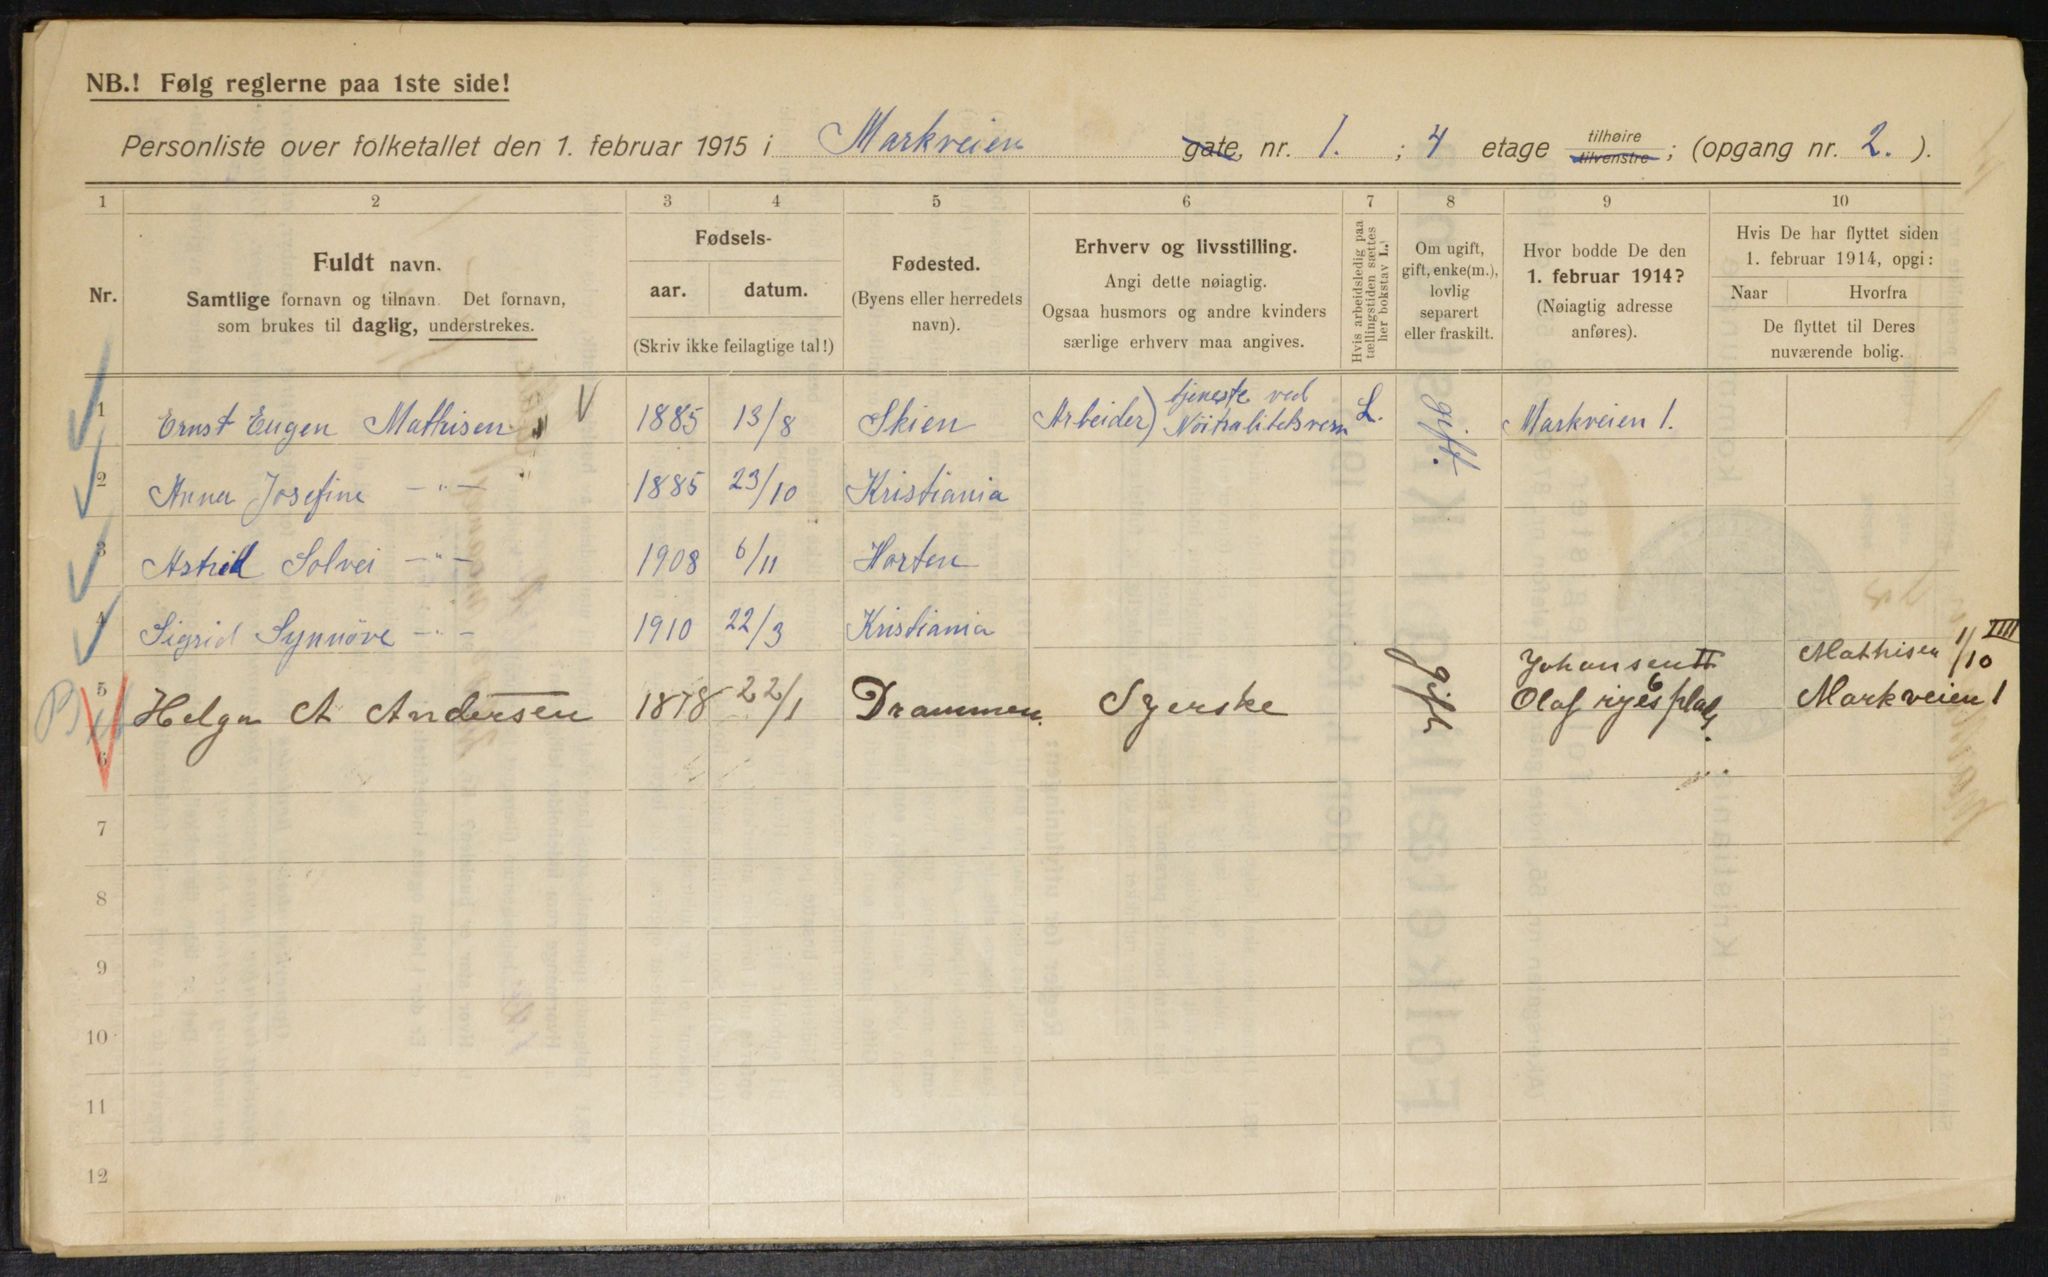 NB.! Følg reglerne paa 1ste side!
Personliste over folketallet den 1. februar 1915 i Markveien gate, nr. 1. ; 4 etage tilhøire tilvenstre ; (opgang nr. 2. ).
1 2 3 4 5 6 7 8 9 10
Nr.
Fuldt navn.
Samtlige fornavn og tilnavn. Det fornavn,
som brukes til daglig, understrekes.
Fødsels-
aar. datum.
(Skriv ikke feilagtige tal!)
Fødested.
(Byens eller herredets
navn).
Erhverv og livsstilling.
Angi dette nøiagtig.
Ogsaa husmors og andre kvinders
særlige erhverv maa angives.
Hvis arbeidsledig paa
tællingstiden sættes
her bokstav L.
Om ugift,
gift, enke(m.),
lovlig
separert
eller fraskilt.
Hvor bodde De den
1. februar 1914?
(Nøiagtig adresse
anføres).
Hvis De har flyttet siden
1. februar 1914, opgi:
Naar Hvorfra
De flyttet til Deres
nuværende bolig.
1 Ernst Eugen Mathisen 1885 13/8 Skien Arbeider) tjeneste ved Nöitralitetsvern L. gift. Markveien 1.
2 Anna Josefine -"- 1885 23/10 Kristiania
3 Astrid Solvei -"- 1908 6/11 Horten
4 Sigrid Synnöve -"- 1910 22/3 Kristiania
5 Helga A Andersen 1878 22/1 Drammen. Syerske gift Johansen II Olaf ryes 6 plads. Mathisen 1/10 IIII Markveien 1
6
7
8
9
10
11
12